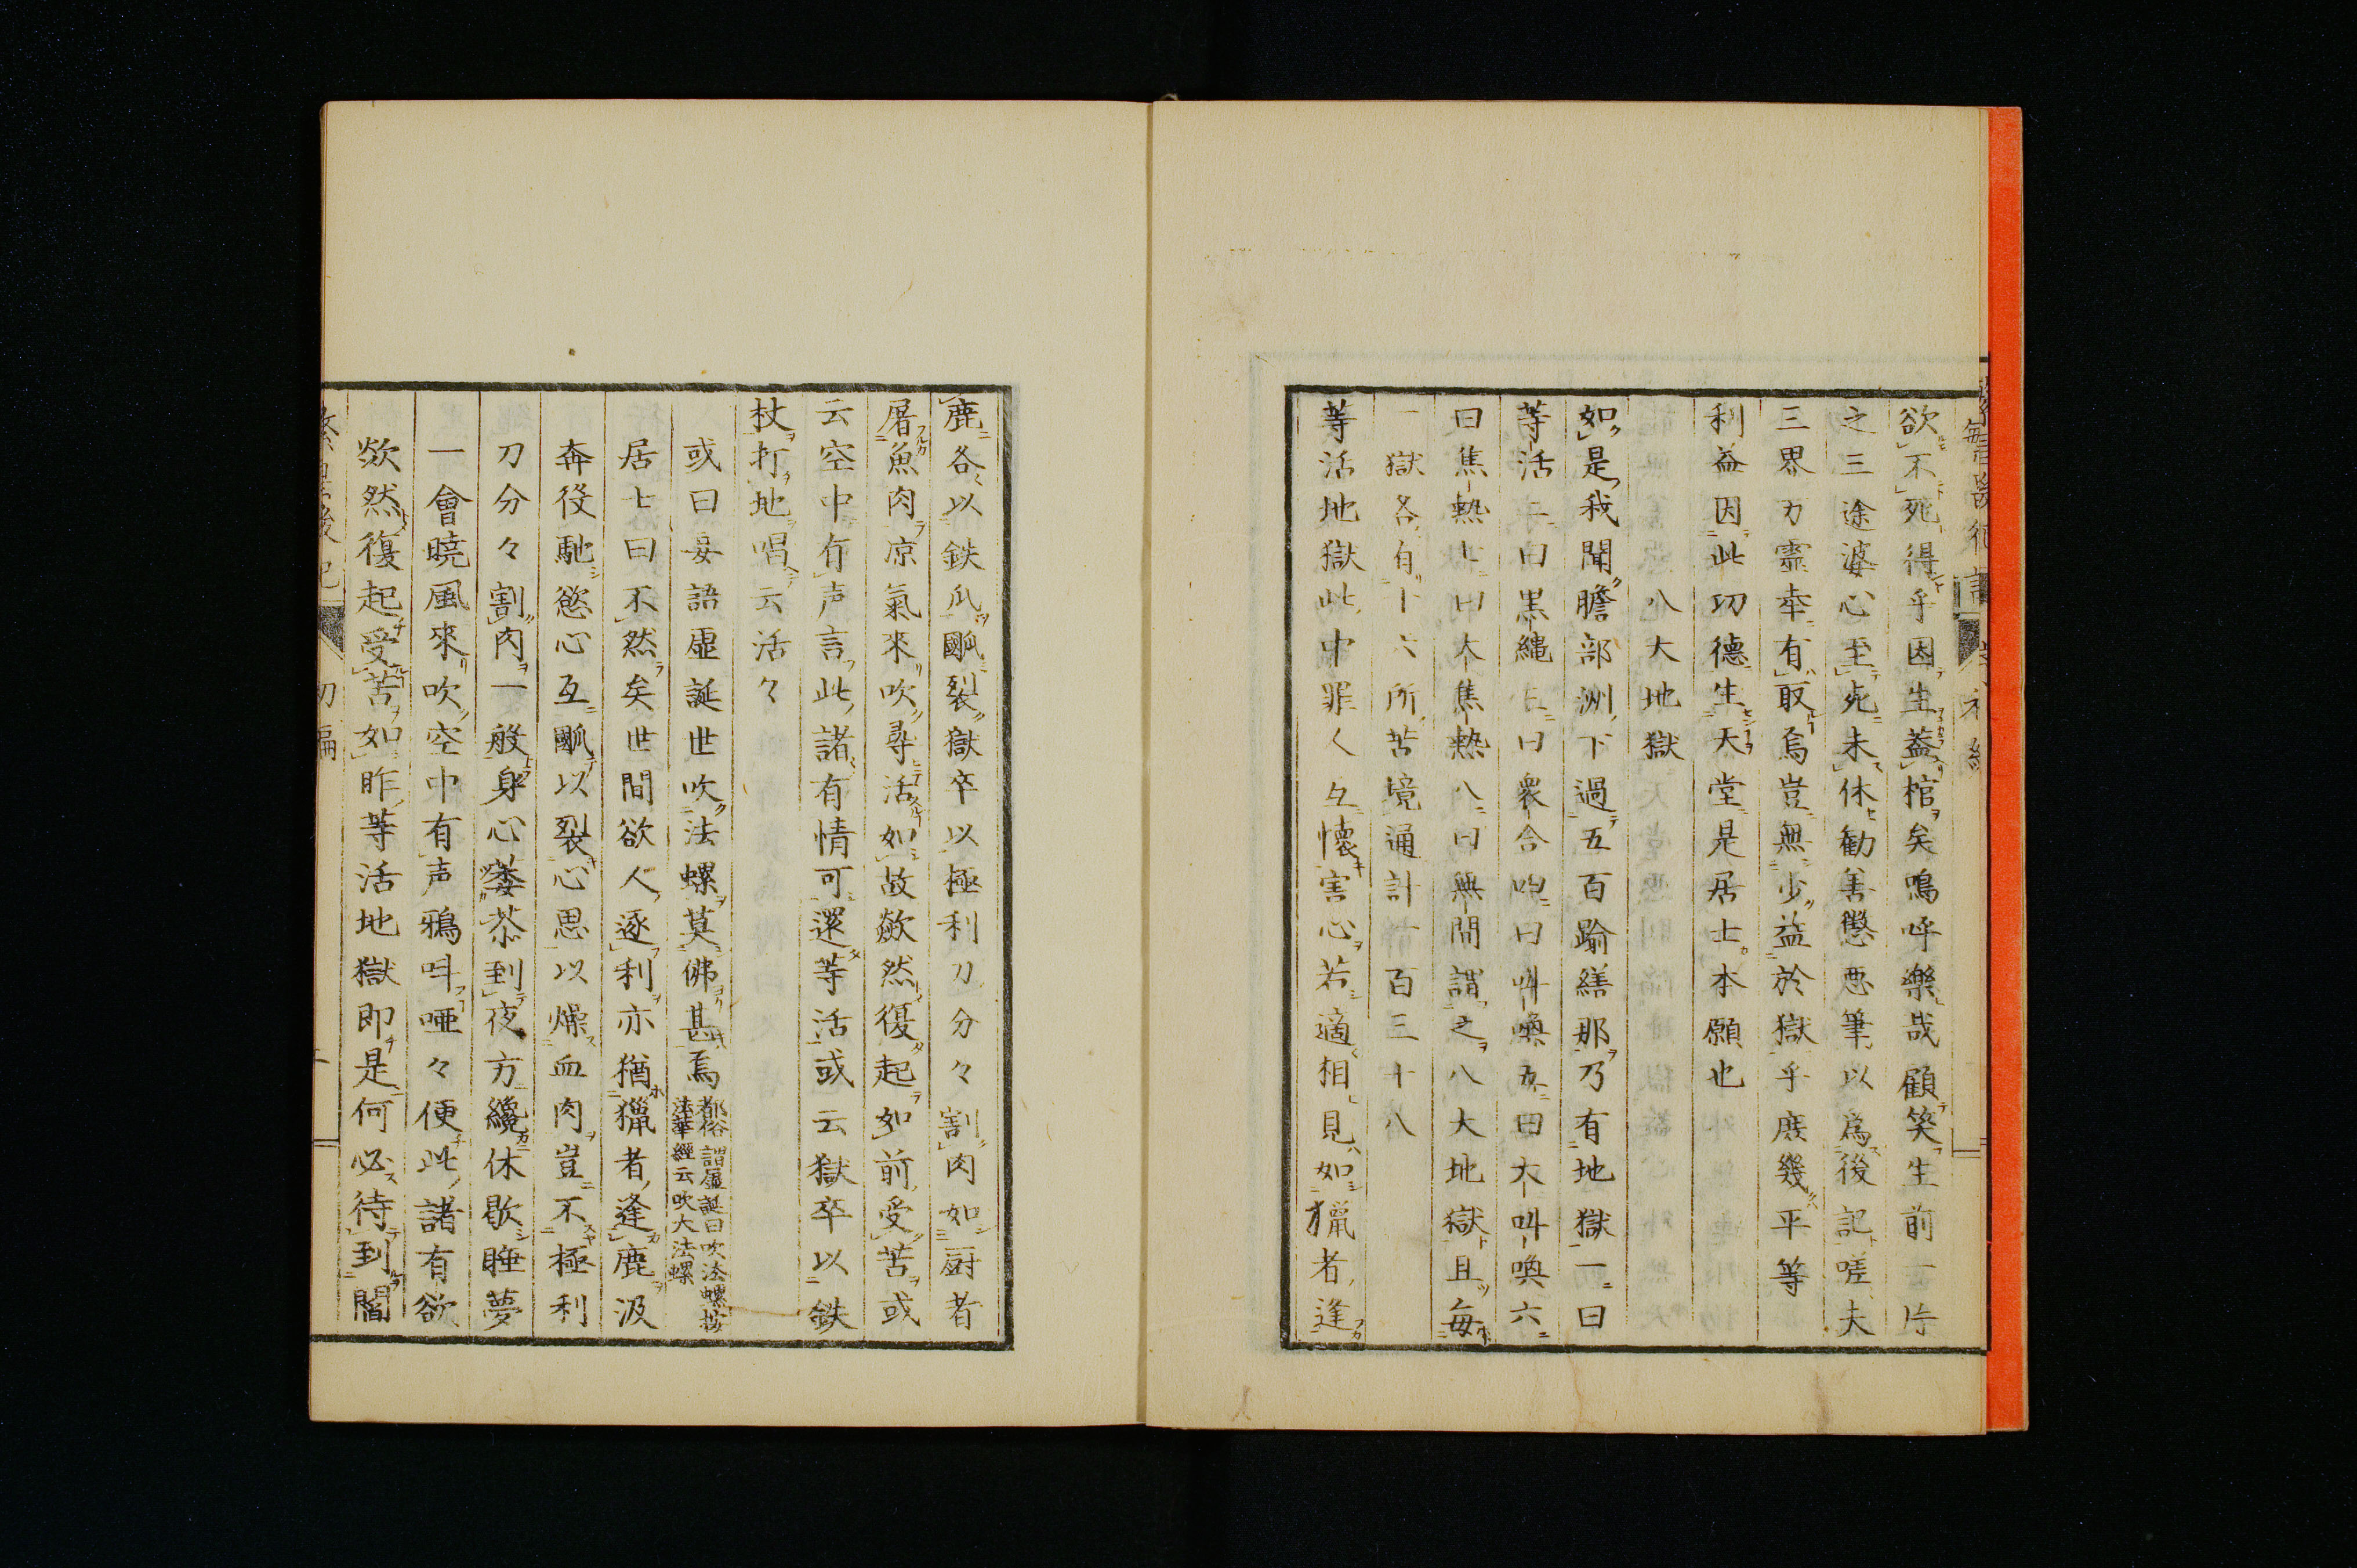 欲不死得乎因生蓋棺矣嗚呼樂哉顧笑生前一片
之三途婆心至死未休勸善懲惡筆以為後記嗟夫
三界万靈幸有取焉豈無少益於獄乎庶幾平等
利益因此功德生天堂是居士本願也
八大地獄
如是我聞瞻部洲下過五百踰繕那乃有地獄一曰
等活二曰黒繩三曰衆合四曰叫喚五曰大叫喚六
曰焦熱七曰大焦熱八曰無間謂之八大地獄且毎
一獄各有十六所苦境通計一百三十八
等活地獄此中罪人互懷害心若適相見如獵者逢
鹿各以鉄爪爴裂獄卒以極利刀分々割肉如厨者
屠魚肉凉氣來吹尋活如故歘然復起如前受苦或
云空中有声言此諸有情可還等活或云獄卒以鉄
杖打地唱云活々
或曰妄語虚誕世吹法螺莫佛甚焉 都俗謂虚誕曰吹法螺按
法華經云吹大法螺
居士曰不然矣世間欲人逐利亦猶獵者逢鹿汲
奔役馳慾心互爴以裂心思以燥血肉豈不極利
刀分々割肉一般身心萎苶到夜方纔休歇睡夢
一會曉風來吹空中有声鴉呌唖々便此諸有欲
歘然復起受苦如昨等活地獄即是何必待到閻
初編